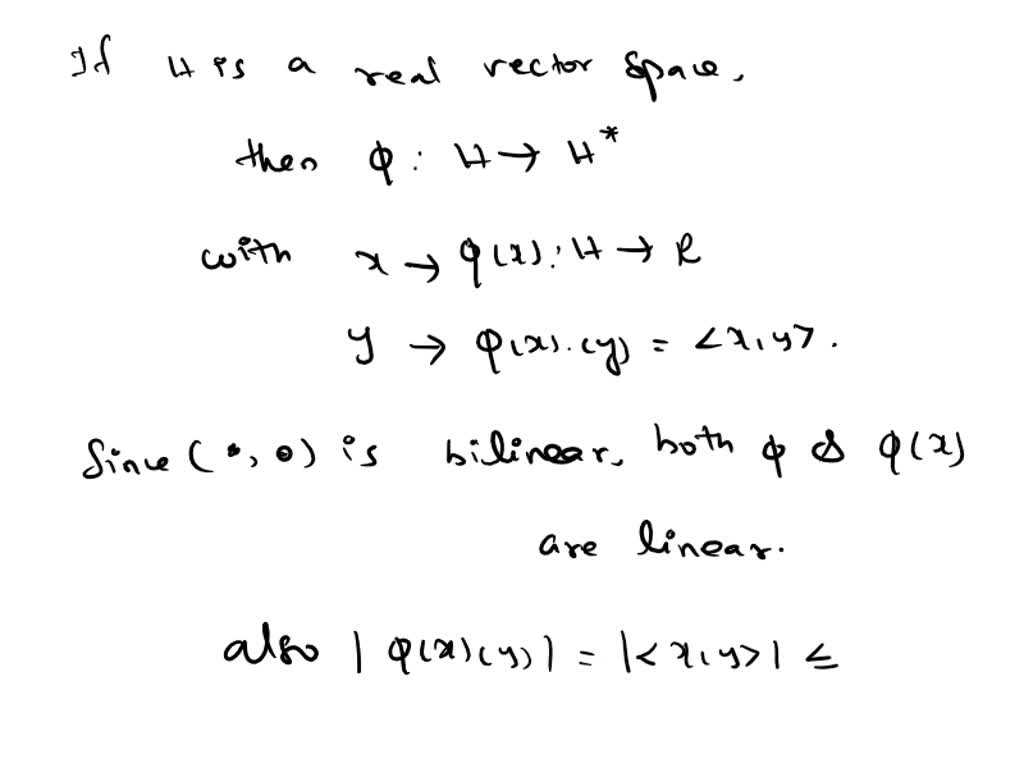 If H is a real vector space,
then φ : H → H*
with x → φ(x) : H → R
y → φ(x).(y) = <x,y>.
Since (•,•) is bilinear, both φ & φ(x)
are linear.
also |φ(x)(y)| = |<x,y>| ≤